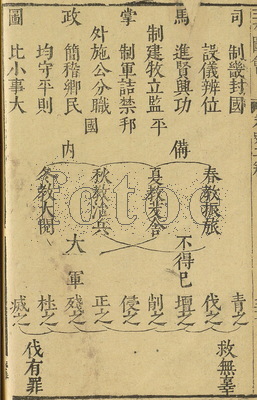 司
制畿封國
設儀辨位
馬
進賢興功
制建牧立監
平
掌
制軍詰禁
邦
外施公分職
國
政
簡稽鄉民
均守平則
圖
比小事大
備
內
春教振旅
夏教茇舍
秋教治兵
冬教大閱
不得已
大軍
眚之
伐之
壇之
削之
侵之
正之
殘之
杜之
滅之
救無辜
伐有罪